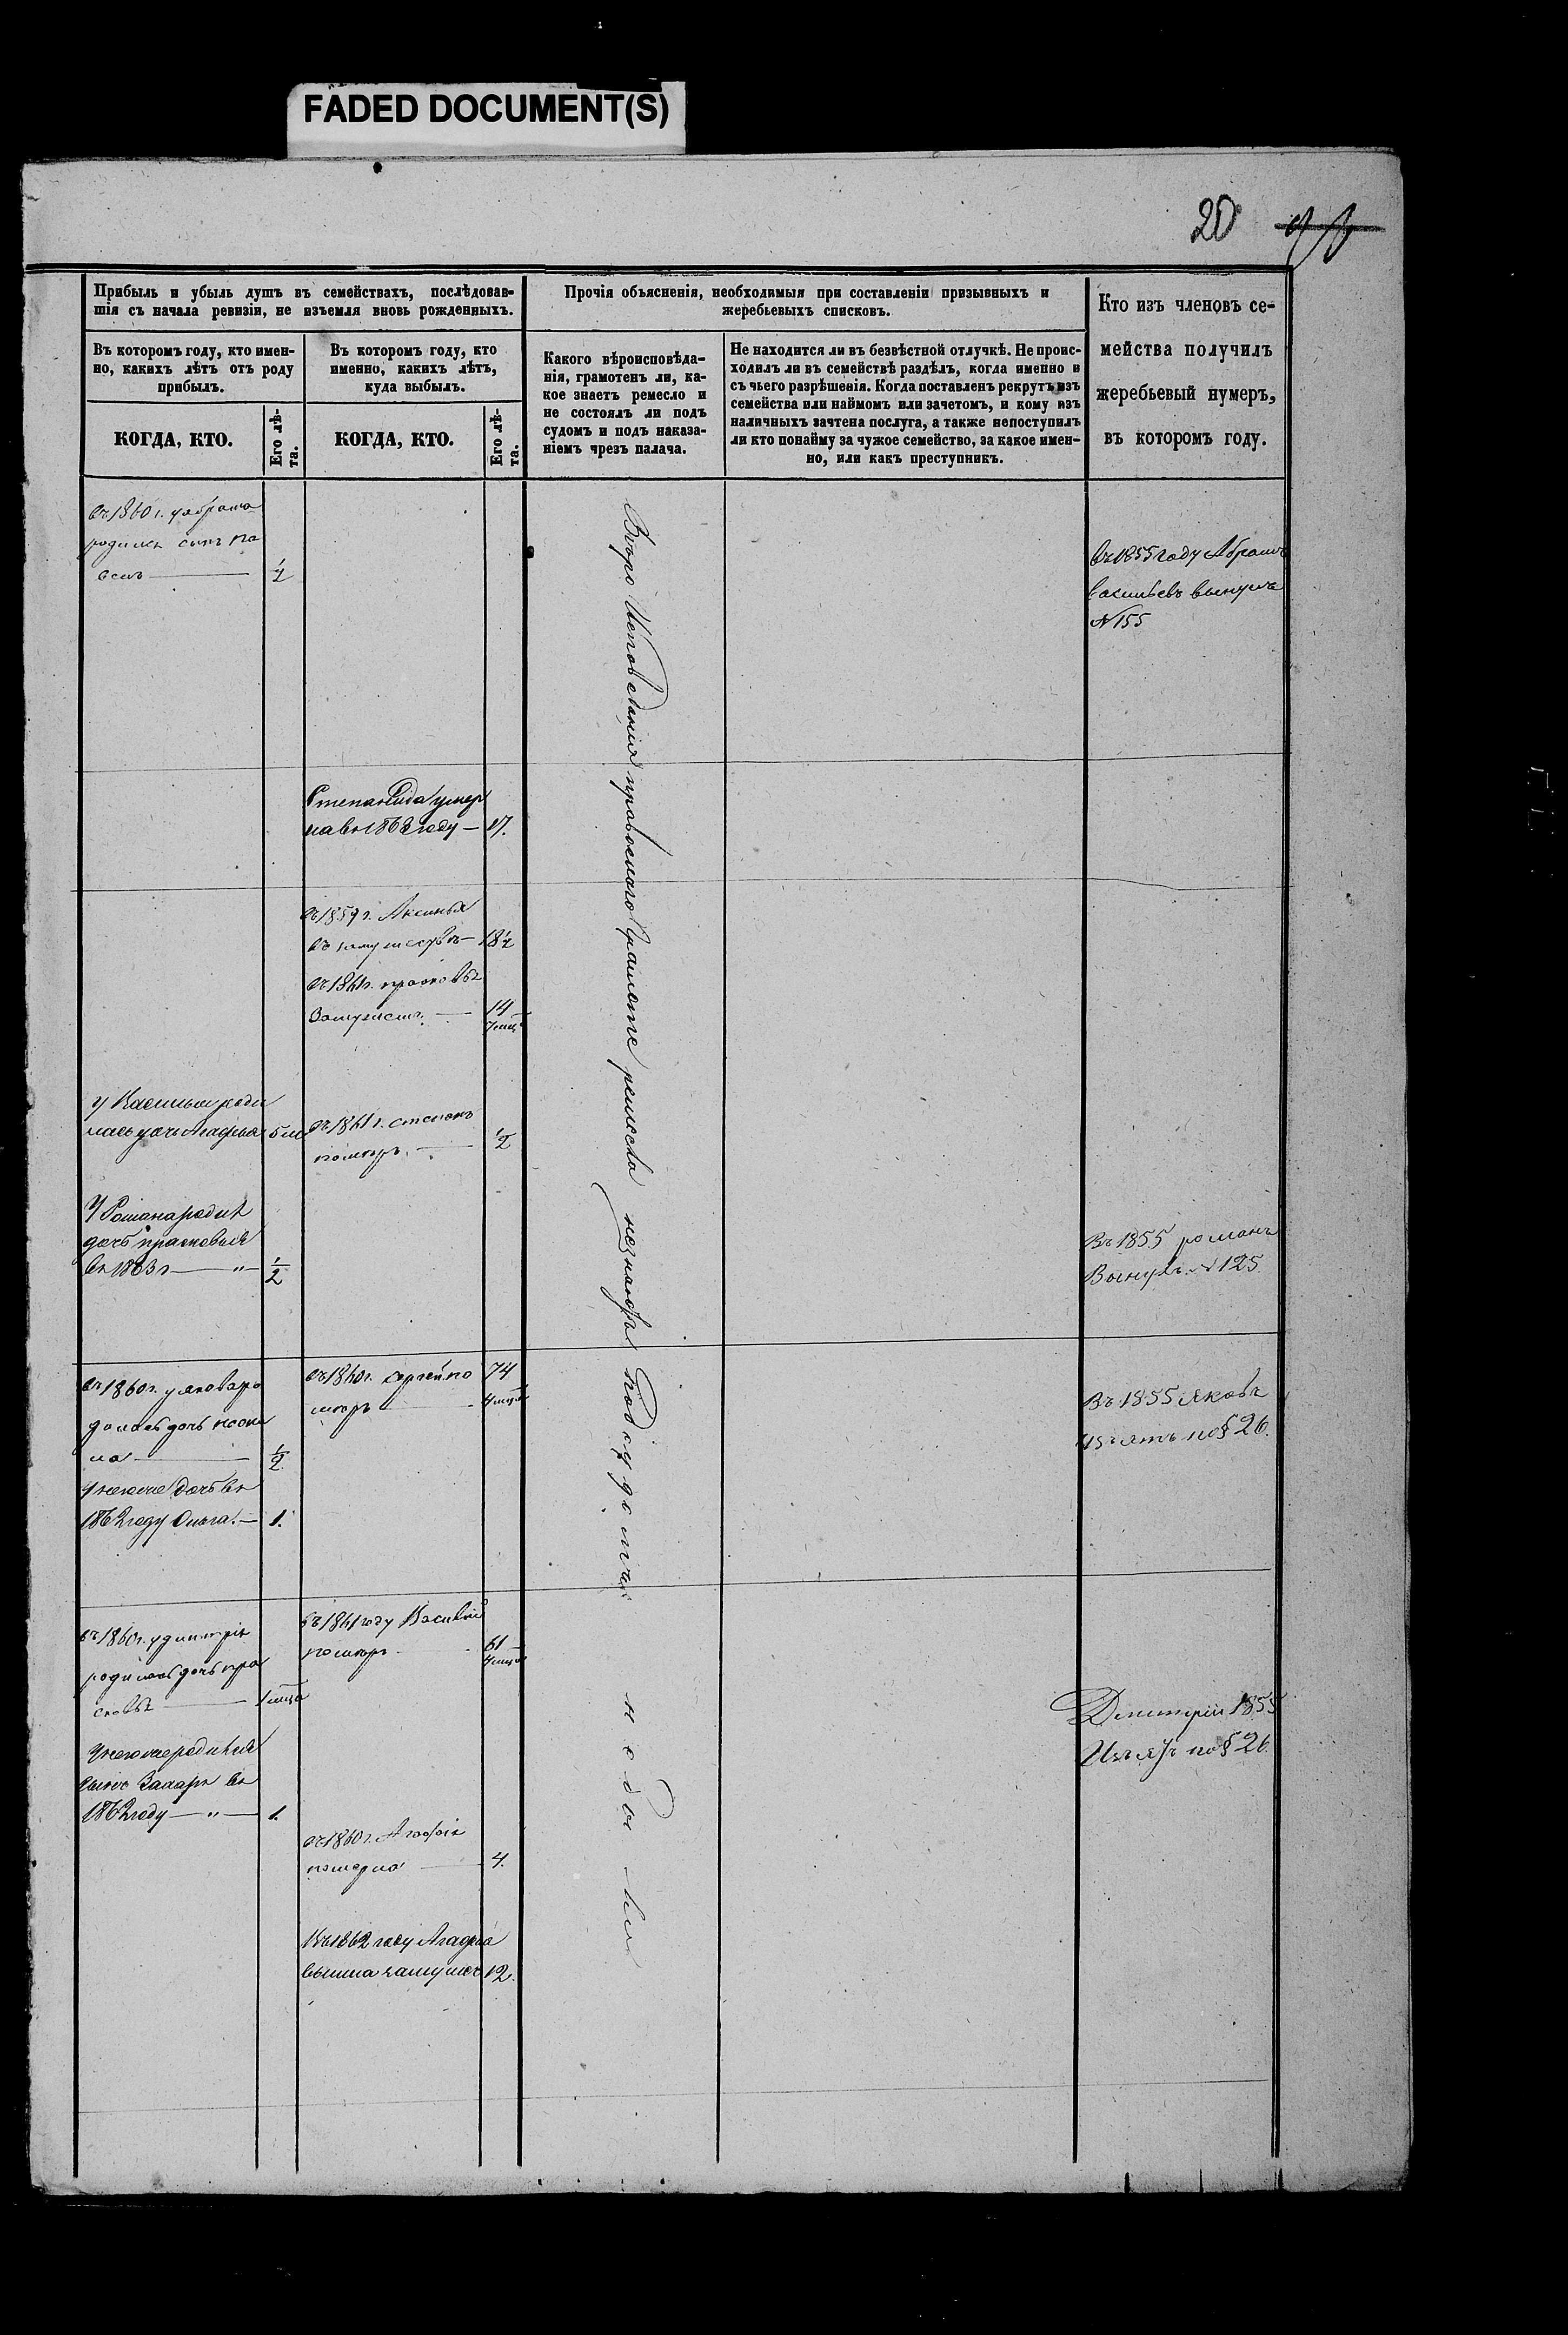 FADED DOCUMENT(S)
20
Прибыль и убыль душъ въ семействахъ, послѣдовав-
шія съ начала ревизіи, не изъемля вновь рожденныхъ.
Прочія объясненія, необходимыя при составленіи призывныхъ и
жеребьевыхъ списковъ.
Кто изъ членовъ се-
мейства получилъ
жеребьевый нумеръ,
въ которомъ году.
Въ которомъ году, кто имен-
но, какихъ лѣтъ отъ роду
прибылъ.
Въ которомъ году, кто
именно, какихъ лѣтъ,
куда выбылъ.
Какого вѣроисповѣда-
нія, грамотенъ ли, ка-
кое знаетъ ремесло и
не состоялъ ли подъ
судомъ и подъ наказа-
ніемъ чрезъ палача.
Не находится ли въ безвѣстной отлучкѣ. Не проис-
ходилъ ли въ семействѣ раздѣлъ, когда именно и
съ чьего разрѣшенія. Когда поставленъ рекрутъ изъ
семейства или наймомъ или зачетомъ, и кому изъ
наличныхъ зачтена послуга, а также непоступилъ
ли кто понайму за чужое семейство, за какое имен-
но, или какъ преступникъ.
КОГДА, КТО.
Его лѣ-
та.
КОГДА, КТО.
Его лѣ-
та.
въ 1860 г. у абрама
родился сынъ па
велъ — 1/2
Въ 1855 году Абрамъ
Васильевъ вынулъ
№ 155
Степанида умер
ла въ 1863 году — 17.
въ 1859 г. Аксинья
въ замужествѣ — 18 1/2
въ 1861 г. прасковья
Замужемъ — 14
у Василья роди
лась дочь Агафья 5 м
въ 1861 г. степанъ
померъ. — 1/2
У Романа родил
дочь прасковья
въ 1863 г — " — 1/2
Въ 1855 романъ
Вынулъ № 125
въ 1860 г. у якова ро
дилась дочь
1/2
У него же дочь въ
1862 году Ольга. — 1.
въ 1860 г. сергей по
меръ — 74
Въ 1855 Яковъ
Изъятъ по § 26.
въ 1860 г. у дмитрія
родилась дочь пра
сковья
У него же родился
сынъ Захаръ въ
1862 году — " — 1.
въ 1861 году Василій
померъ — 61
въ 1860 г. Агафія
померла — 4.
Въ 1862 году Агафья
вышла замужъ 12.
Дмитрій 1855
Изъятъ по § 26.
Вѣро Исповеданія православного Грамоте ремесла незнаютъ Подсудомъ небыли